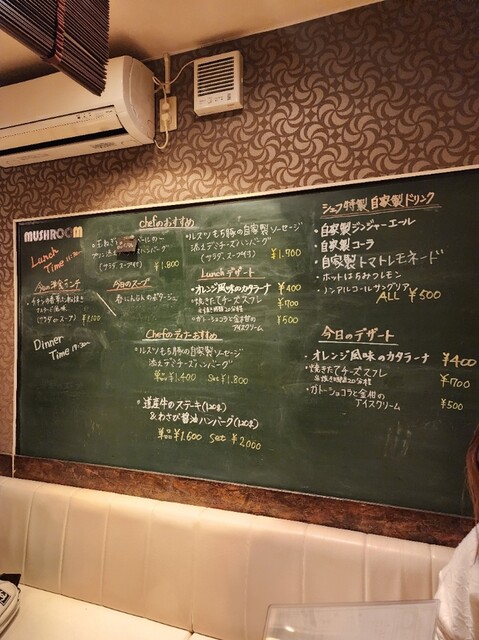 MUSHROOM
Lunch
Time 11:30~
今日の洋食ランチ
(サラダorスープ) ¥1,100
Dinner
Time 17:30~
今日のスープ
春にんじんのポタージュ
chefのおすすめ
(サラダ、スープ付)
¥1.800
ルスツもち豚の自家製ソーセージ
添えデミチーズハンバーグ
(サラダ、スープ付)
¥1.700
Lunchデザート
・オレンジ風味のカタラーナ ¥400
・焼きたてチーズスフレ ¥700
※焼き時間20分程
・ガトーショコラと金柑の
アイスクリーム ¥500
Chefのディナーおすすめ
・ルスツもち豚の自家製ソーセージ
添えデミチーズハンバーグ
単品 ¥1.400 Set ¥1.800
・道産牛のステーキ(120g)
&わさび醤油ハンバーグ(120g)
単品 ¥1.600 Set ¥2.000
シェフ特製 自家製ドリンク
・自家製ジンジャーエール
・自家製コーラ
・自家製トマトレモネード
・ホットはちみつレモン
・ノンアルコールサングリア
ALL ¥500
今日のデザート
・オレンジ風味のカタラーナ ¥400
・焼きたてチーズスフレ ¥700
※焼き時間20分程
・ガトーショコラと金柑の
アイスクリーム ¥500